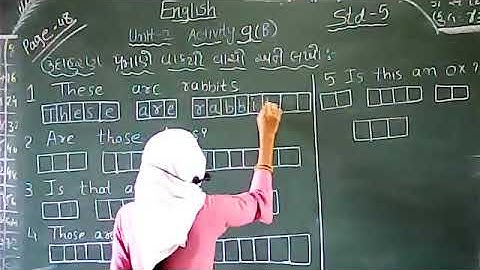 English
Page:-48
Unit-2 Activity 9(B)
Std-5
ઉદાહરણ પ્રમાણે વાક્યો વાંચો અને લખો :
1 These are rabbits
These are rabb
2 Are those
3 Is that a
4 Those are
5 Is this an ox?